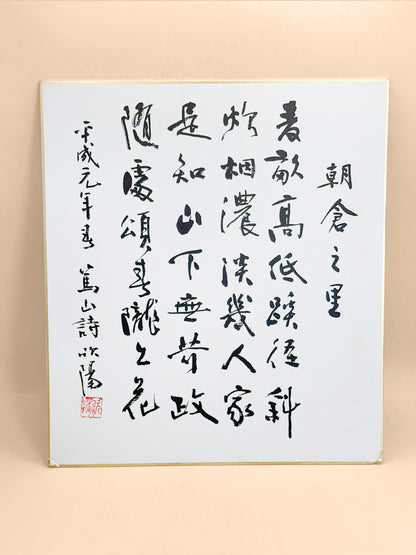 朝倉之里
麦畝高低蹊径斜
炊烟濃淡幾人家
是知山下無苛政
随處頌春隴上花
平成元年春 篤山詩 欣陽